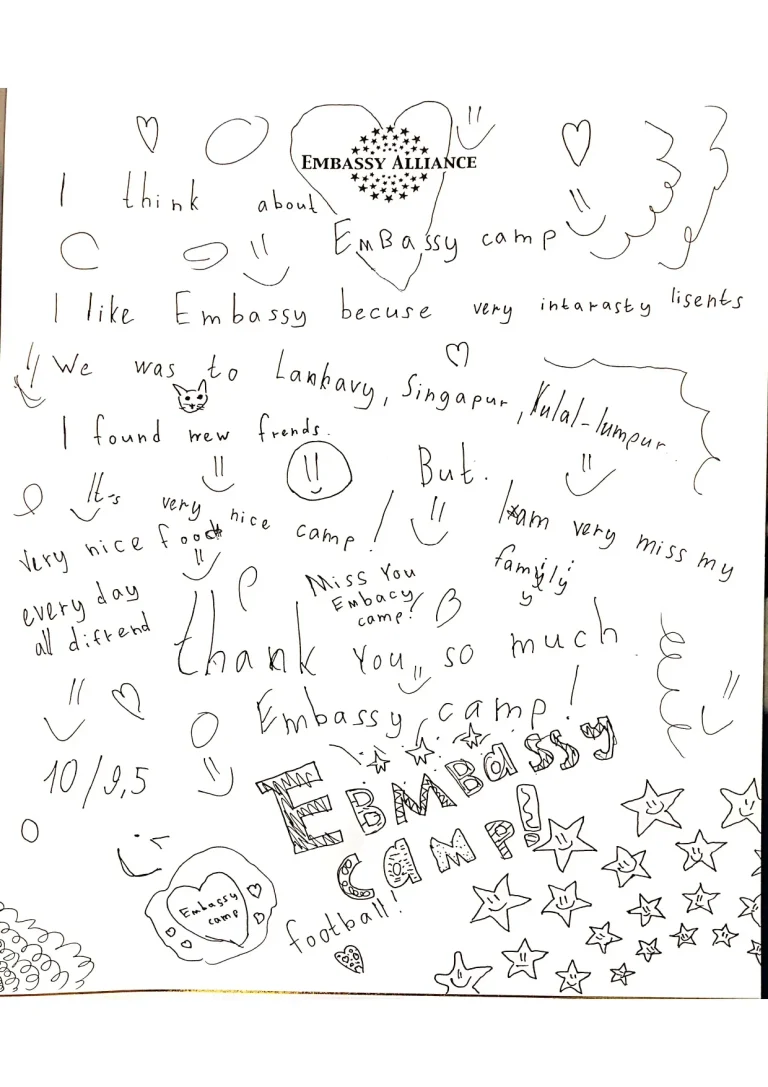 EMBASSY ALLIANCE
I think about
EmBassy camp
I like Embassy becuse very intarasty lisents
We was to Lankavy, Singapur, Kulal-lumpur..
I found new frends.
But.
It-s very nice camp!
I am very miss my
familyiy
very nice food
every day
all difrend
Miss You
Embacy
camp!
thank You so much.
Embassy camp!
10/9,5
EBMBassy
camp!
Embassy
camp
football!